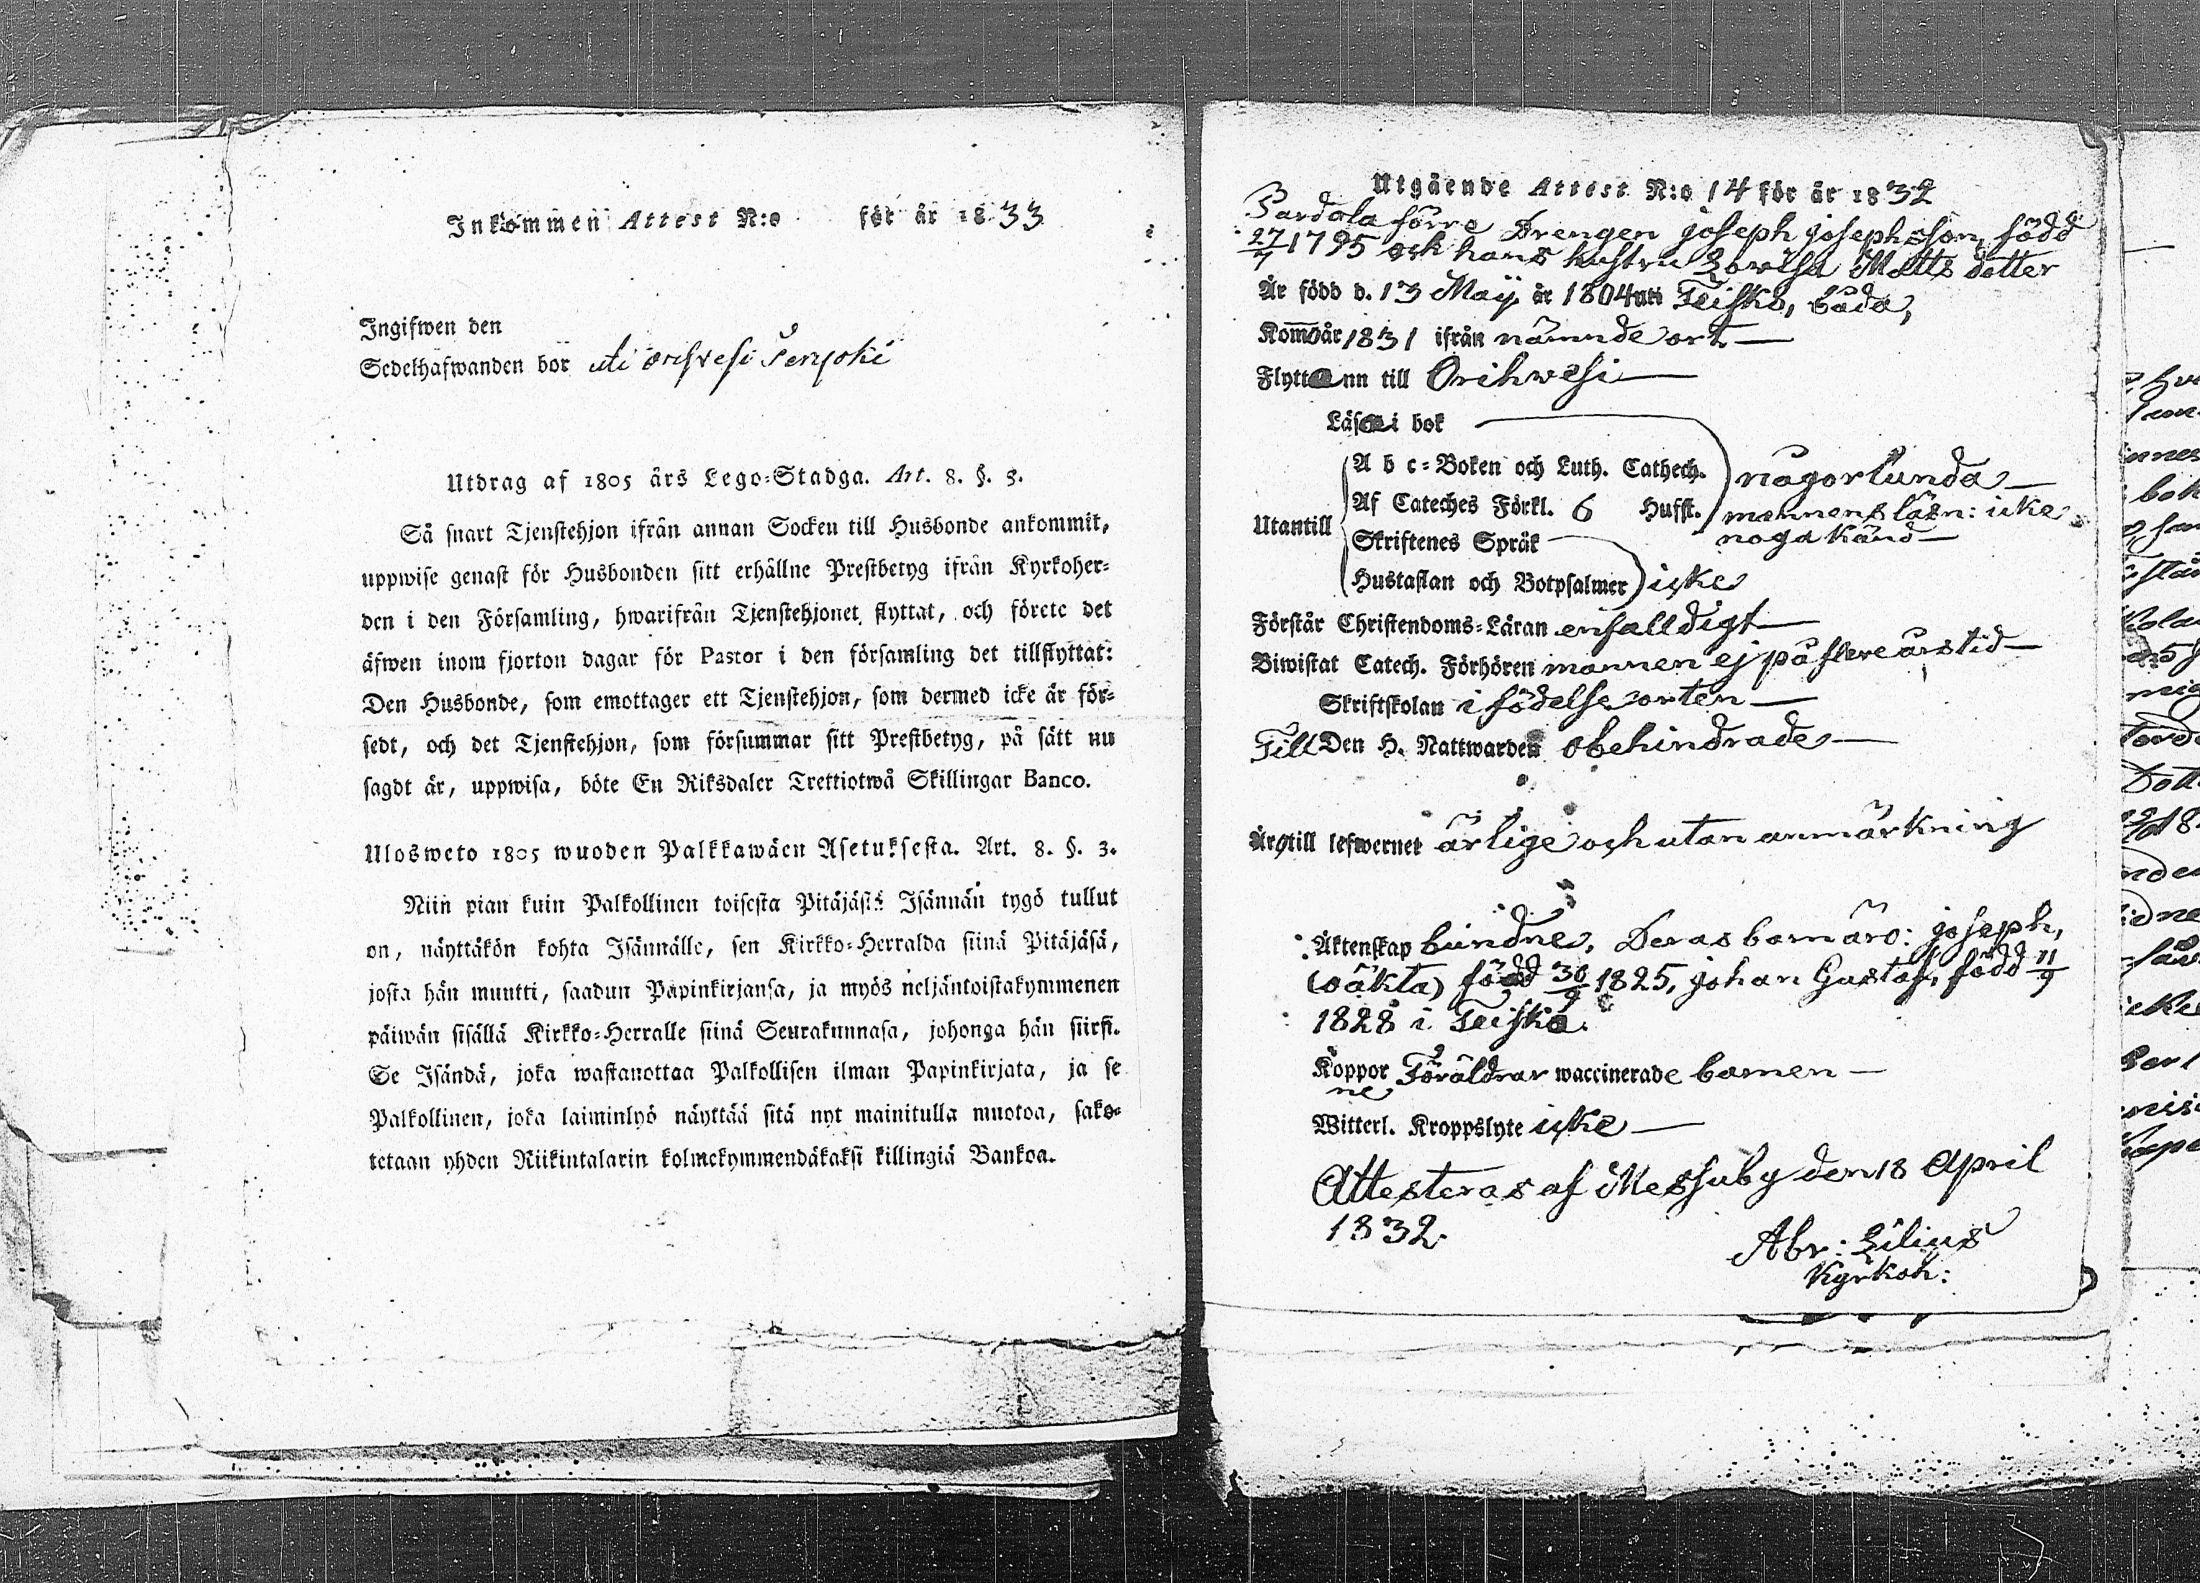 Inkommen Attest N:o för år 1833
Ingifwen den
Sedelhafwanden bor uti
Utdrag af 1805 års Lego=Stadga. Art. 8. §. 3.
Så snart Tjenstehjon ifrån annan Socken till Husbonde ankommit,
uppwise genast för Husbonden sitt erhållne Prestbetyg ifrån Kyrkoher=
den i den Församling, hwarifrån Tjenstehjonet flyttat, och förete det
äfwen inom fjorton dagar för Pastor i den församling det tillflyttat:
Den Husbonde, som emottager ett Tjenstehjon, som dermed icke är för=
sedt, och det Tjenstehjon, som försummar sitt Prestbetyg, på sätt nu
sagdt är, uppwisa, böte En Riksdaler Trettiotwå Skillingar Banco.
Ulosweto 1805 wuoden Palkkawäen Asetuksesta. Art. 8. §. 3.
Niin pian kuin Palkollinen toisesta Pitäjästä Isännän tygö tullut
on, näyttäkön kohta Isännälle, sen Kirkko=Herralda siinä Pitäjäsä,
josta hän muutti, saadun Papinkirjansa, ja myös neljäntoistakymmenen
päiwän sisällä Kirkko=Herralle siinä Seurakunnasa, johonga hän siirsi.
Se Isändä, joka wastanottaa Palkollisen ilman Papinkirjata, ja se
Palkollinen, joka laiminlyö näyttää sitä nyt mainitulla muotoa, sako=
tetaan yhden Riikintalarin kolmekymmendäkaksi killingiä Bankoa.
Utgående Attest N:o 14 för år 1832
Pardala förre Drengen joseph josephsson, född
27/7 1795 och hans hustru Lowisa Matts dotter
Är född d. 13 Maij år 1804 uti Teisko, båda,
Kom år 1831 ifrån nämnde ort
Flytta nu till Orihwesi
Läsa i bok
A b c=Boken och Luth. Cathech. någorlunda
Af Cateches Förkl. 6 Hufst. mannens läsn: icke
Utantill Skriftenes Språk noga känd
Hustaflan och Botpsalmer icke
Förstår Christendoms=Läran enfalldigt
Biwistat Catech. Förhören mannen ej på flere års tid
Skriftskolan i födelse orten
Till Den H. Nattwarden obehindrade
Äro till lefwernet ärlige och utan anmärkning
Äktenskap bundne. Deras barn äro: joseph,
(oäkta) född 30/9 1825, johan Gustaf, född 11/9
1828 i Teisko.
Koppor Föräldrar waccinerade barnen
ne
Witterl. Kroppslyte icke
Attesteras af Messuby den 18 April
1832.
Abr: Lilius
Kyrkoh: